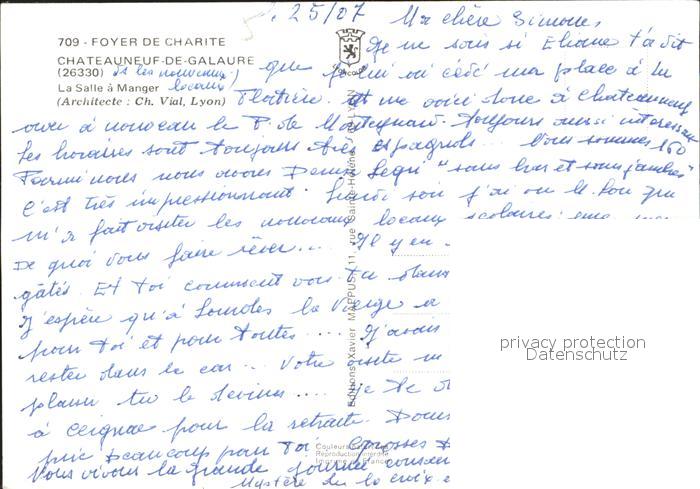 25/07 Ma chère Simone,
709 - FOYER DE CHARITE
CHATEAUNEUF-DE-GALAURE
(26330)
La Salle à Manger
(Architecte : Ch. Vial, Lyon)
et les nouveaux locaux
Je ne sais si Eliane t'a dit
que je lui ai cédé ma place à La
Flatière. Et me voici donc à Chateauneuf
avec à nouveau le P. de Toujours aussi intéressant
Les horaires sont toujours très espagnols... Nous sommes 160
Parmi nous nous avons Denise Legri "sans bras et sans jambes"
C'est très impressionnant. soir j'ai vu le
m'a fait visiter les nouveaux locaux scolaires
De quoi vous faire rêver... Il y en
gâtés. Et toi comment vas-tu dans
J'espère qu'à Lourdes la Vierge a
pour toi et pour toutes.... J'avais
rester dans le car... Votre visite m
plaisir tu le devines.... Je te
à Ceignac pour la retraite.
prie Beaucoup pour toi. Grosses
Nous vivons la grande journée
Mystère de la croix
Editions Xavier MAPPUS, 11, rue Sainte-Hélène, LYON
Couleurs
Reproduction interdite
privacy protection
Datenschutz